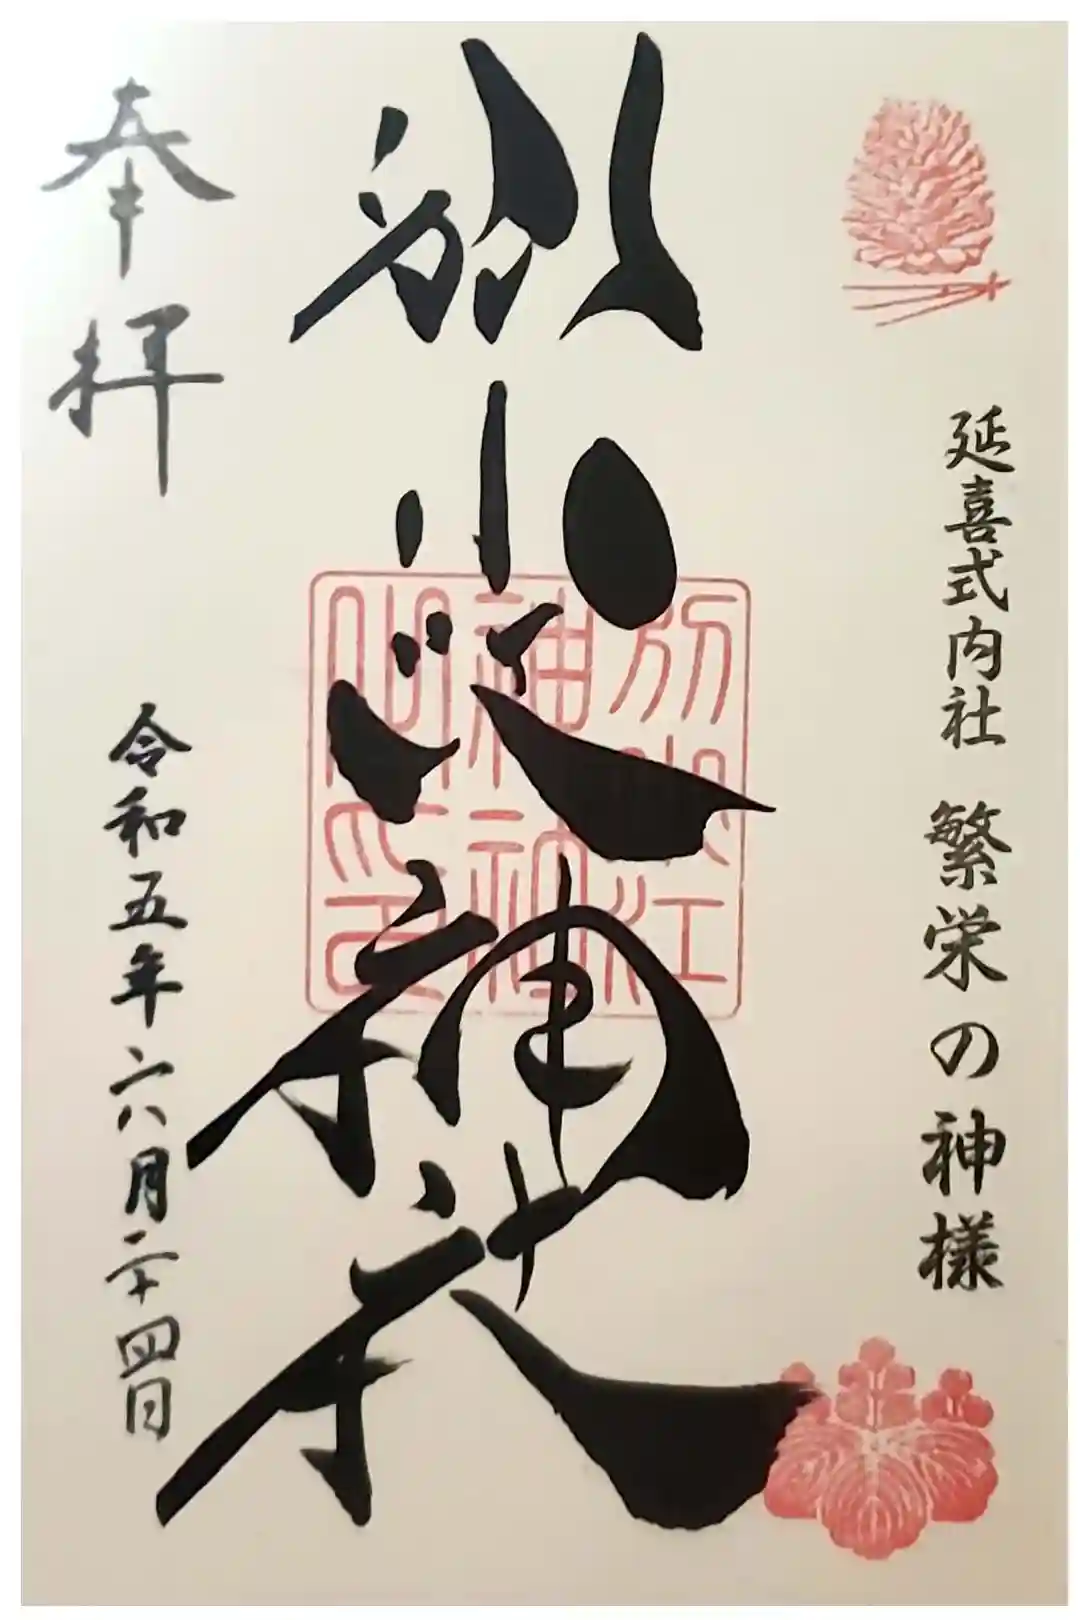 延喜式内社 繁栄の神様
別小江神社
別小江
奉拝
令和五年六月二十四日